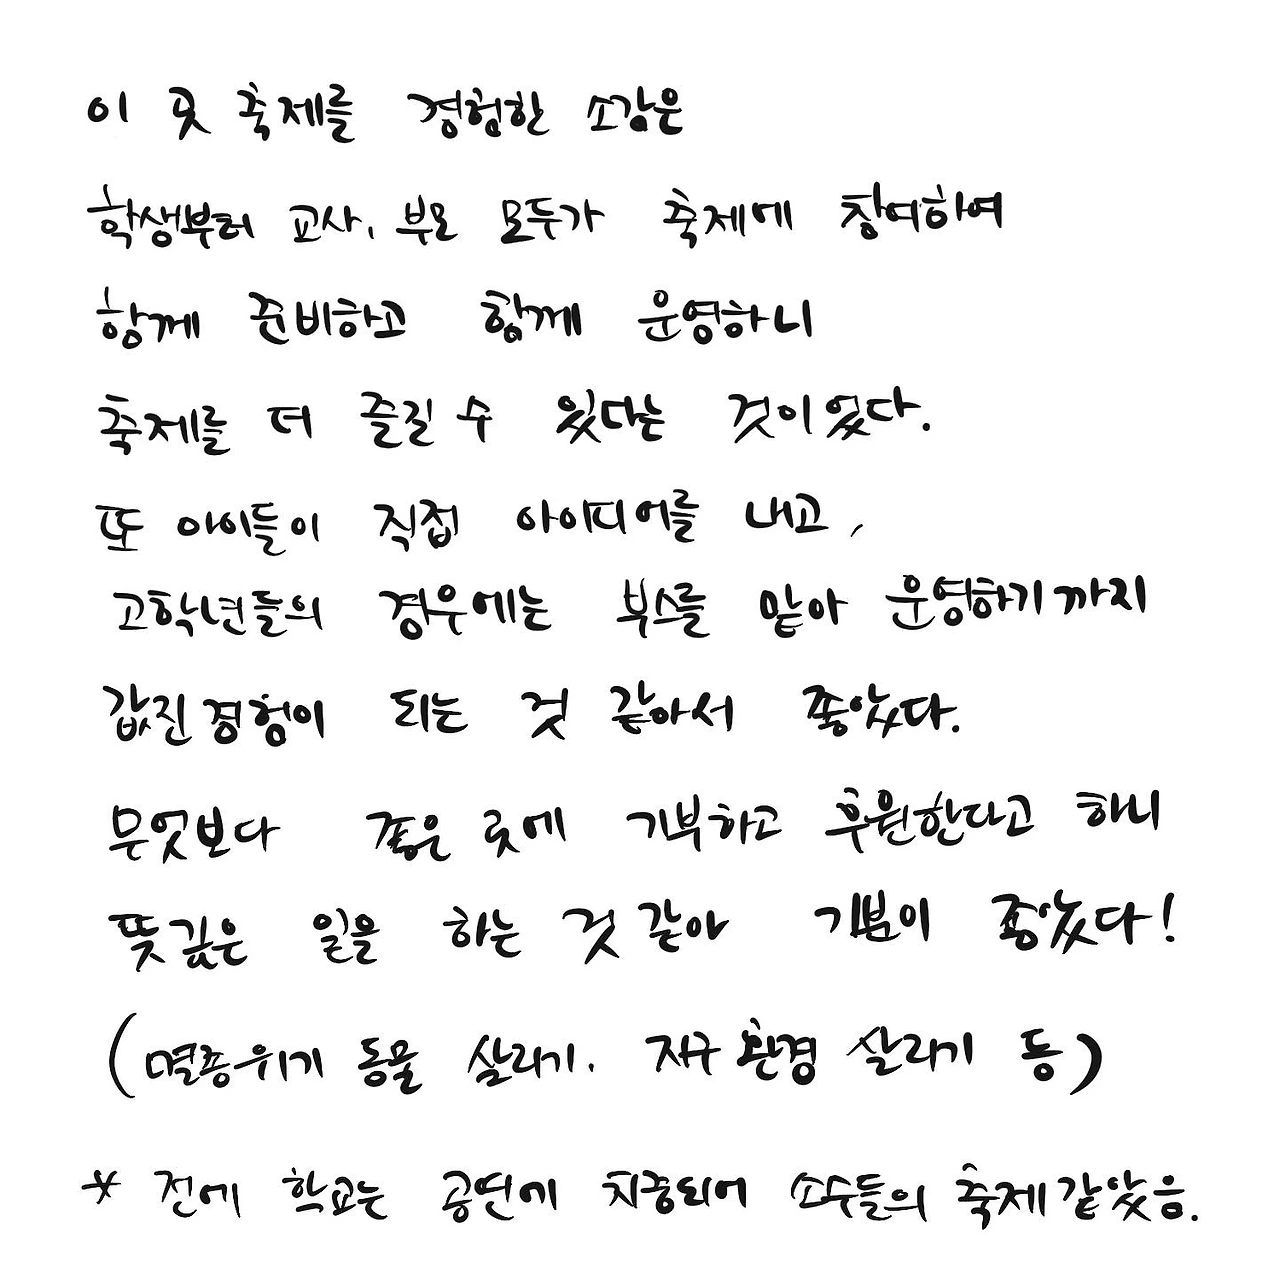 이 곳 축제를 경험한 소감은
학생부터 교사, 부모 모두가 축제에 참여하여
함께 준비하고 함께 운영하니
축제를 더 즐길 수 있다는 것이었다.
또 아이들이 직접 아이디어를 내고,
고학년들의 경우에는 부스를 맡아 운영하기까지
값진 경험이 되는 것 같아서 좋았다.
무엇보다 좋은 곳에 기부하고 후원한다고 하니
뜻깊은 일을 하는 것 같아 기분이 좋았다!
(멸종위기 동물 살리기, 지구 환경 살리기 등)
* 전에 학교는 공연에 치중되어 소수들의 축제 같았음.